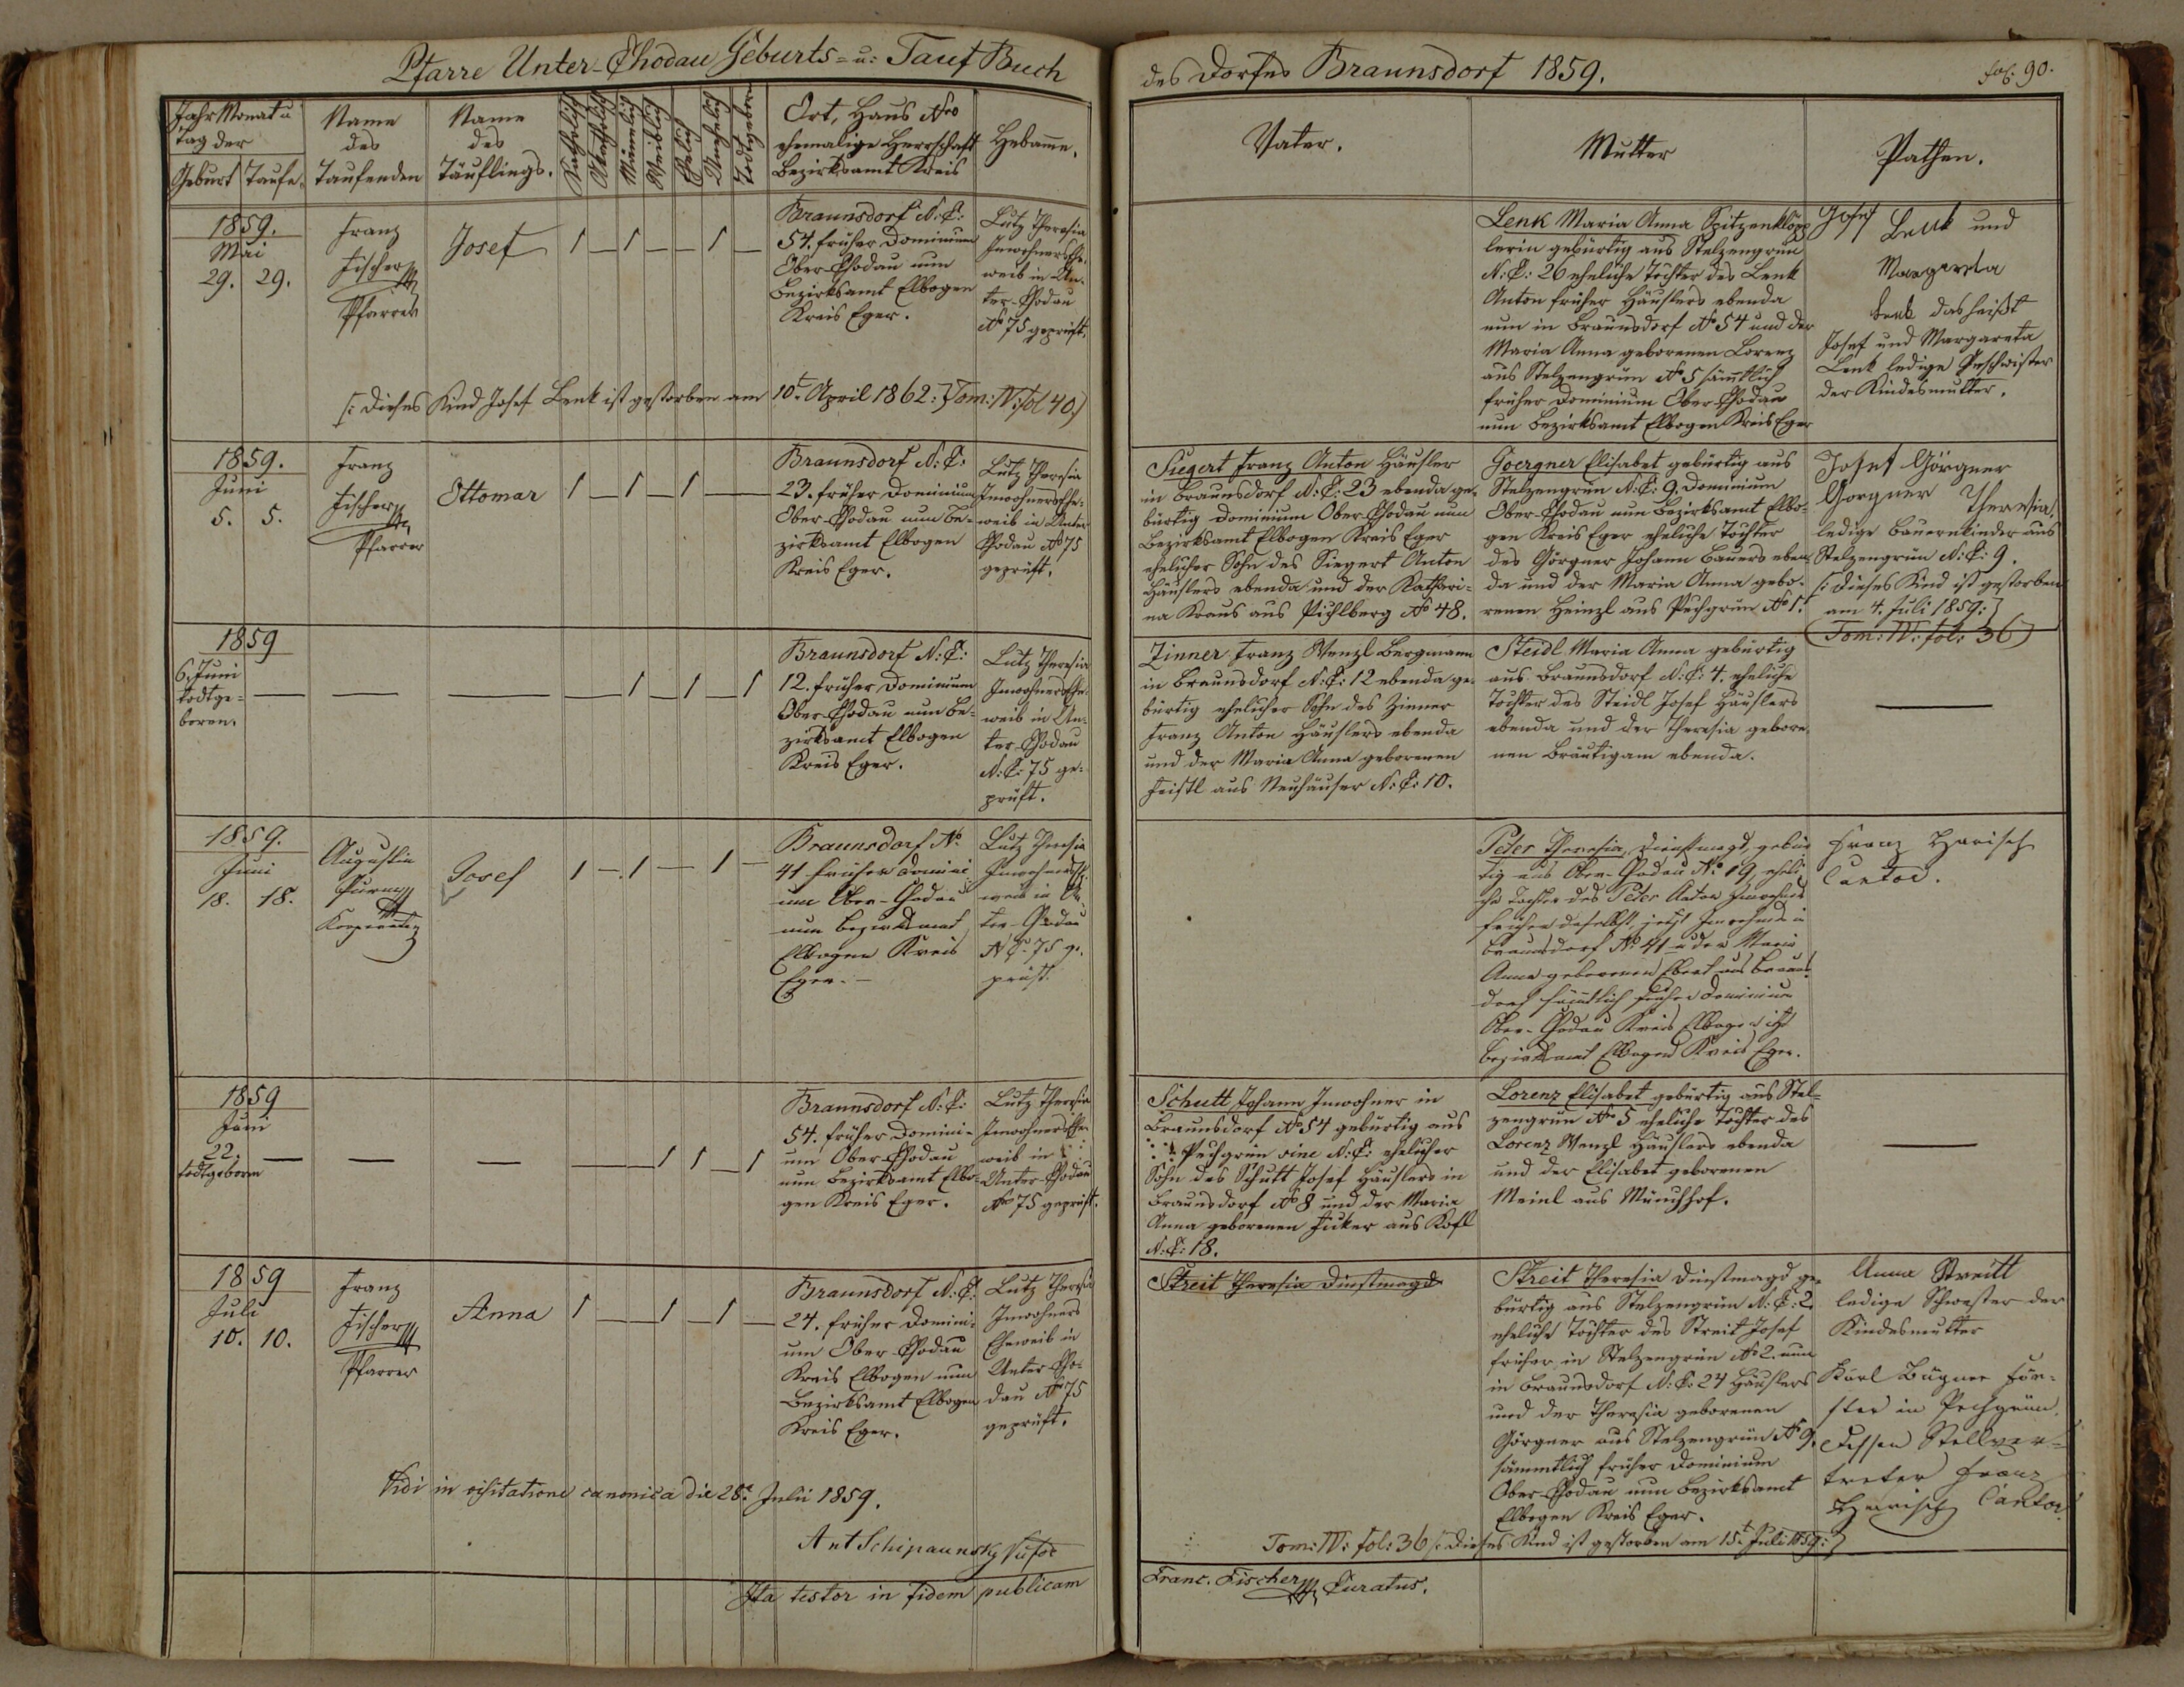 Pfarre Unter-Chodau Geburts- u: Tauf Buch
des Dorfes Braunsdorf 1859.
fol: 90.
Jahr Monat u
Tag der
Geburt Taufe.
Name
des
Taufenden
Name
des
Täuflings.
Katholisch
Akatholisch
Männlich
Weiblich
Ehelich
Unehelich
Todtgeboren
Ort, Haus Nro
ehemalige Herrschaft
Bezirksamt Kreis
Hebamme.
Vater.
Mutter
Pathen.
1859.
Mai
29. 29.
Franz
Fischer
Pfarrer
Josef
1 — 1 — — 1 —
Braunsdorf N: C:
54. früher Dominium
Ober-Chodau nun
Bezirksamt Elbogen
Kreis Eger.
Lutz Theresia
Inwohners Ehe-
weib in Un-
ter-Chodau
No 75 geprüft.
Lenk Maria Anna Spitzenklöpp
lerin gebürtig aus Stelzengrün
N: C: 26 eheliche Tochter des Lenk
Anton früher Häuslers ebenda
nun in Braunsdorf No 54 und der
Maria Anna geborenen Lorenz
aus Stelzengrün No 5 sämmtlich
früher Dominium Ober-Chodau
nun Bezirksamt Elbogen Kreis Eger
Josef Lenk und
Margareta
Lenk das heißt
Josef und Margareta
Lenk ledige Geschwister
der Kindesmutter.
[: Dieses Kind Josef Lenk ist gestorben am 10t April 1862:] Tom: IV: fol 40)
1859.
Juni
5. 5.
Franz
Fischer
Pfarrer
Ottomar
1 — 1 — 1 —
Braunsdorf N: C:
23. früher Dominium
Ober-Chodau nun Be-
zirksamt Elbogen
Kreis Eger.
Lutz Theresia
Inwohners Ehe-
weib in Unter
Chodau No 75
geprüft.
Siegert Franz Anton Häusler
in Braunsdorf N: C: 23 ebenda ge-
bürtig Dominium Ober-Chodau nun
Bezirksamt Elbogen Kreis Eger
ehelicher Sohn des Siegert Anton
Häuslers ebenda und der Kathari-
na Kraus aus Pichlberg No 48.
Goergner Elisabet gebürtig aus
Stelzengrün N: C: 9. Dominium
Ober-Chodau nun Bezirksamt Elbo-
gen Kreis Eger eheliche Tochter
des Görgner Johann Bauers eben
da und der Maria Anna gebo-
renen Heinzl aus Pechgrün No 1.
Josef Görgner
Gorgner Theresia.
ledige Bauernkinder aus
Stelzengrün N: C: 9.
[: Dieses Kind ist gestorben
am 4. Juli 1859:]
(Tom: IV: fol: 36)
1859
6. Juni
todtge-
boren.
— — — — 1 — 1 — 1
Braunsdorf N: C:
12. früher Dominium
Ober-Chodau nun Be-
zirksamt Elbogen
Kreis Eger.
Lutz Theresia
Inwohners Ehe-
weib in Un-
ter-Chodau
N: C: 75 ge-
prüft.
Zinner Franz Wenzl Bergmann
in Braunsdorf N: C: 12 ebenda ge-
bürtig ehelicher Sohn des Zinner
Franz Anton Häuslers ebenda
und der Maria Anna geborenen
Feistl aus Neuhäuser N: C: 10.
Steidl Maria Anna gebürtig
aus Braunsdorf N: C: 4. eheliche
Tochter des Steidl Josef Häuslers
ebenda und der Theresia gebore-
nen Bräutigam ebenda.
1859.
Juni
18. 18.
Augustin
Kooperator
Josef
1 — 1 — 1 —
Braunsdorf No
41 früher Domini
um Ober-Chodau
nun Bezirksamt
Elbogen Kreis
Eger. —
Lutz Theresia
Inwohners Ehe
weib in Un
ter-Chodau
N: C: 75 ge-
prüft.
Peter Theresia, Dienstmagd, gebür
tig aus Ober-Chodau No 19, eheli
che Tochter des Peter Anton Inwohners
früher daselbst, jetzt Inwohner in
Braunsdorf No 41 u der Maria
Anna geborenen Ebert aus Brauns
dorf sämmtlich früher Dominium
Ober-Chodau Kreis Elbogen itzt
Bezirksamt Elbogen Kreis Eger.
Franz Harisch
Cantor.
1859
Juni
22.
todtgeboren
— — — — 1 1 — 1
Braunsdorf N: C:
54. früher Domini-
um Ober-Chodau
nun Bezirksamt Elbo-
gen Kreis Eger.
Lutz Theresia
Inwohners Ehe
weib in
Unter-Chodau
No 75 geprüft.
Schutt Johann Inwohner in
Braunsdorf No 54 gebürtig aus
Pechgrün sine N: C: ehelicher
Sohn des Schutt Josef Häuslers in
Braunsdorf No 8 und der Maria
Anna geborenen Fuker aus Kösl
N: C: 18.
Lorenz Elisabet gebürtig aus Stel-
zengrün No 5 eheliche Tochter des
Lorenz Wenzl Häuslers ebenda
und der Elisabet geborenen
Meinl aus Münchhof.
1859
Juli
10. 10.
Franz
Fischer
Pfarrer
Anna
1 — — 1 — 1 —
Braunsdorf N: C:
24. früher Domini-
um Ober-Chodau
Kreis Elbogen nun
Bezirksamt Elbogen
Kreis Eger.
Lutz Theresia
Inwohners
Eheweib in
Unter-Cho-
dau No 75
geprüft.
Streit Theresia Dienstmagd
Streit Theresia Dienstmagd ge-
bürtig aus Stelzengrün N: C: 2
eheliche Tochter des Streit Josef
früher in Stelzengrün No 2. nun
in Braunsdorf N: C: 24 Häuslers
und der Theresia geborenen
Görgner aus Stelzengrün No 9.
sämmtlich früher Dominium
Ober-Chodau nun Bezirksamt
Elbogen Kreis Eger.
Anna Streitt
ledige Schwester der
Kindesmutter
Karl Bügner För-
ster in Pechgrün.
Dessen Stellver-
treter Franz
Harisch Cantor
Tom: IV: fol: 36 [: Dieses Kind ist gestorben am 15t Juli 1859:]
Vidi in visitatione canonica die 28a Julii 1859.
Ant Schipaunsky
Ita testor in fidem publicam
Franc. Fischer Curatus.